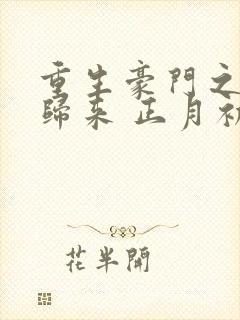 重生豪門之
歸来 正月初
花半開